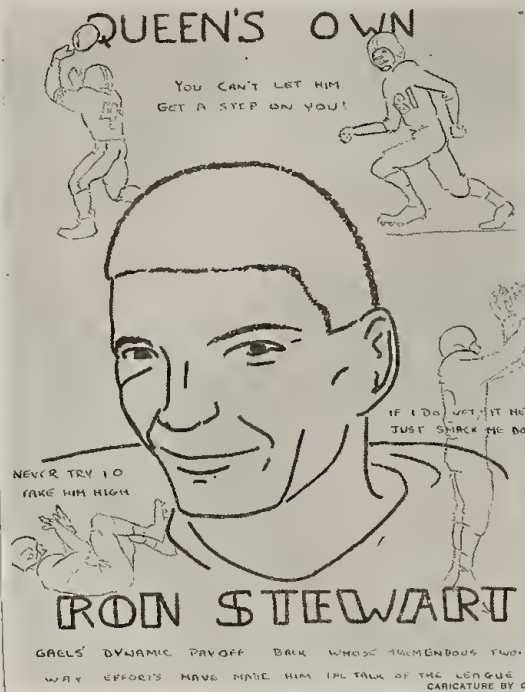 QUEEN'S OWN
YOU CAN'T LET HIM
GET A STEP ON YOU!
IF I DO
JUST SMACK ME
NEVER TRY TO
TAKE HIM HIGH
RON STEWART
GAELS' DYNAMIC PAYOFF BACK WHOSE TREMENDOUS TWO-
WAY EFFORTS HAVE MADE HIM THE TALK OF THE LEAGUE
CARICATURE BY